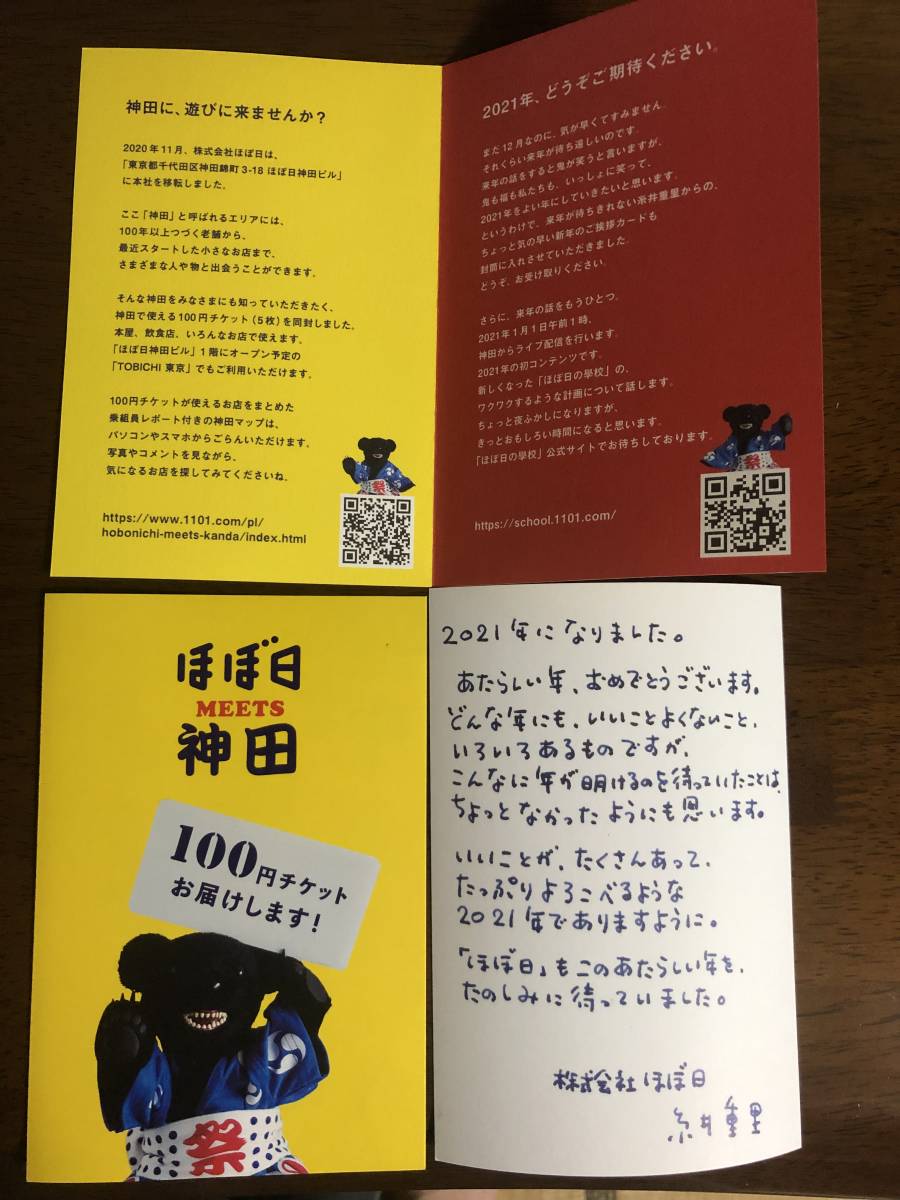 神田に、遊びに来ませんか?
2020年11月、株式会社ほぼ日は、
「東京都千代田区神田錦町3-18 ほぼ日神田ビル」
に本社を移転しました。
ここ「神田」と呼ばれるエリアには、
100年以上つづく老舗から、
最近スタートした小さなお店まで、
さまざまな人や物と出会うことができます。
そんな神田をみなさまにも知っていただきたく、
神田で使える100円チケット(5枚)を同封しました。
本屋、飲食店、いろんなお店で使えます。
「ほぼ日神田ビル」1階にオープン予定の
「TOBICHI 東京」でもご利用いただけます。
100円チケットが使えるお店をまとめた
乗組員レポート付きの神田マップは、
パソコンやスマホからごらんいただけます。
写真やコメントを見ながら、
気になるお店を探してみてくださいね。
https://www.1101.com/pl/
hobonichi-meets-kanda/index.html
祭
2021年、どうぞご期待ください。
まだ12月なのに、気が早くてすみません。
それくらい来年が待ち遠しいのです。
来年の話をすると鬼が笑うと言いますが、
鬼も福も私たちも、いっしょに笑って、
2021年をよい年にしていきたいと思います。
というわけで、来年が待ちきれない糸井重里からの、
ちょっと気の早い新年のご挨拶カードも
封筒に入れさせていただきました。
どうぞ、お受け取りください。
さらに、来年の話をもうひとつ。
2021年1月1日午前1時、
神田からライブ配信を行います。
2021年の初コンテンツです。
新しくなった「ほぼ日の學校」の、
ワクワクするような計画について話します。
ちょっと夜ふかしになりますが、
きっとおもしろい時間になると思います。
「ほぼ日の學校」公式サイトでお待ちしております。
https://school.1101.com/
祭
ほぼ日
MEETS
神田
100円チケット
お届けします!
祭
2021年になりました。
あたらしい年、おめでとうございます。
どんな年にも、いいことよくないこと、
いろいろあるものですが、
こんなに年が明けるのを待っていたことは、
ちょっとなかったようにも思います。
いいことが、たくさんあって、
たっぷりよろこべるような
2021年でありますように。
「ほぼ日」もこのあたらしい年を、
たのしみに待っていました。
株式会社ほぼ日
糸井重里